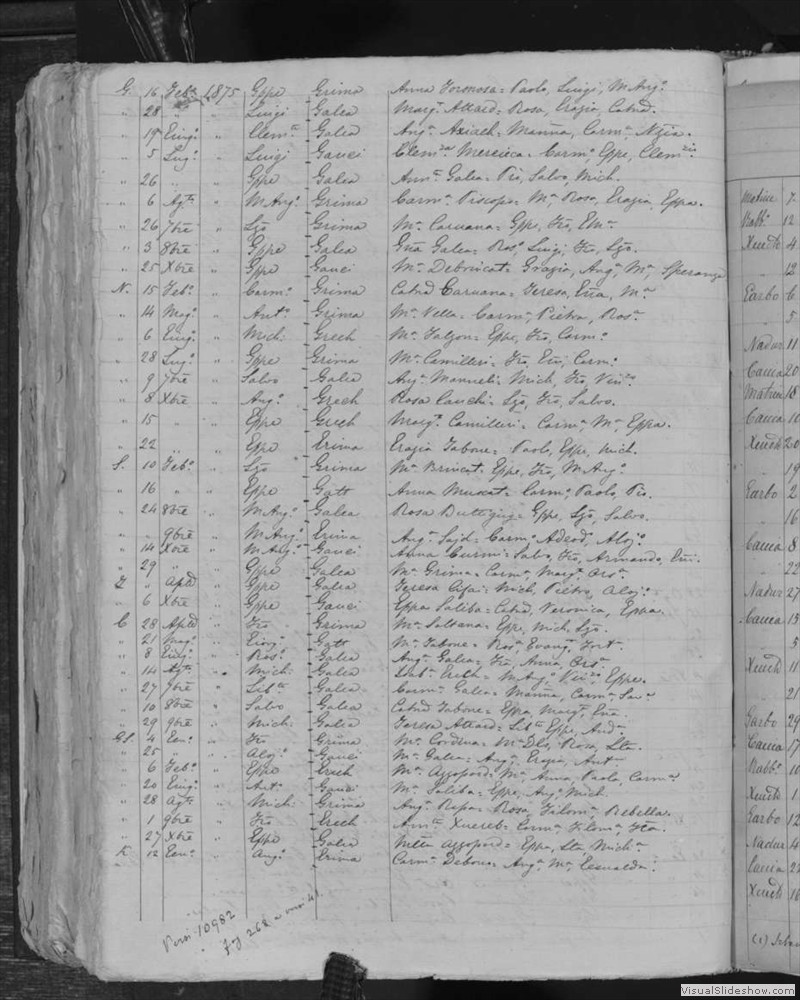 G. 16 Feb.o 1875 Gppe Grima Anna Formosa = Paolo, Luigi, M Ang.a
" 28 " " Luigi Galea Marg.a Attard = Rosa, Erazia, Catnd.
" 19 Eiug.o " Clem.te Galea Ang.a Axiach = Marina, Carm.a Nzia.
" 5 Lug.o " Luigi Gauci Clem.za Mercieca = Carm.o Eppe, Clem.zio
" 26 " " Gppe Galea Ann.a Galea = Pio, Salvo, Mich.
" 6 Agto " M Ang.o Grima Carm.a Piscopo = M.a Rosa, Erazia, Eppa.
" 26 7bre " Lzo Grima M.a Caruana = Gpe, Fro, Em.o
" 3 8bre " Gppe Galea Gna Galea = Ros.o Luigi, Fro, Lzo.
" 25 Xbre " Gppe Gauci M.a Debrincat = Grazia, Ang.a M.a Speranza
N. 15 Feb.o " Carm.o Grima Catnd Caruana = Teresa, Ena, M.a
" 14 Mag.o " Ant.o Grima M.a Vella = Carm.a Pietro, Ros.a
" 6 Eiug.o " Mich. Grech M.a Falzon = Eppe, Fro, Carm.o
" 28 Lug.o " Gppe Grima M.a Camilleri = Fro, Carm.o
" 9 7bre " Salvo Galea Ang.a Manueli = Mich, Fro, Vin.zo
" 8 Xbre " Ang.o Grech Rosa Cauchi = Lzo, Fro, Salvo.
" 15 " " Eppe Grech Marg.a Camilleri = Carm.a M.a Eppa.
" 22 " " Eppe Erima Erazia Tabone = Paolo, Eppe, Mich.
S. 10 Feb.o " Lzo Grima M.a Brincat = Eppe, Fro, M Ang.o
" 16 " " Eppe Gatt Anna Muscat = Carm.o Paolo, Pio.
" 24 8bre " M Ang.o Galea Rosa Buttigieg = Gppe, Lzo, Salvo.
" " 9bre " M Ang.o Erima Ang.a Sajd = Carm.o Adeod, Aloj.o
" 14 Xbre " M Ang.o Gauci Anna Curmi = Salvo, Fro, Armando,
" 29 " " Gppe Galea M.a Grima = Carm.a Marg.a Ors.a
Z " Aple " Gppe Galea Teresa = Mich, Pietro, Aloj.o
" 6 Xbre " Gppe Gauci Eppa Saliba = Catnd, Veronica, Eppa.
C 28 Aple " Fro Grima M.a Sultana = Eppe, Mich, Lzo.
" 21 Mag.o " Eiorg.o Gatt M.a Tabone = Ros.a Evang.a Fort.
" 8 Eiug.o " Ros.o Galea Ang.a Galea = Fro, Anna, Ors.a
" 14 Agto " Mich. Galea Erech = M Ang.o Vin.zo Eppe.
" 27 7bre " Lib.to Galea Carm.a Galea = Marina, Carm.a
" 10 8bre " Salvo Galea Catnd Tabone = Eppa, Marg.a Ena.
" 29 9bre " Mich. Galea Teresa Attard = Lib.to Eppe, And.a
GS. 4 Een.o " Fro Grima M.a Cordina = M.a Dls, Rosa, Lta.
" 25 " " Aloj.o Gauci M.a Galea = Ang.a Erazia, Ant.a
" 6 Feb.o " Eppe Erech M.a Azzopard = M.a Anna, Paola, Carm.a
" 20 Eiug.o " Ant.o Gauci M.a Saliba = Eppe, Ang.o Mich.
" 28 Agto " Mich. Grima Ang.a Rapa = Rosa, Filom.a Rebella.
" 1 9bre " Fro Erech Ann.a Xuereb = Carm.a Filom.a
" 27 Xbre " Eppe Galea Azzopard = Eppa, Lta Mich.a
K 12 Een.o " Ang.o Erima Carm.a Debono = Ang.a M.a
10982
Fg 268
7
Rabb.o 12
Xeuch 4
" 12
Earbo 6
" 5
Nadur 11
Caccia 20
18
Caccia 10
Xeuch 20
" 19
Earbo 2
" 16
Caccia 8
" 22
Nadur 27
Caccia 13
" 5
Xeuch 11
" 21
Garbo 29
Caccia 17
Rabb.o 10
Xeuch 1
Garbo 12
Nadur 4
Caccia 22
Xeuch 18
(1)
VisualSlideshow.com